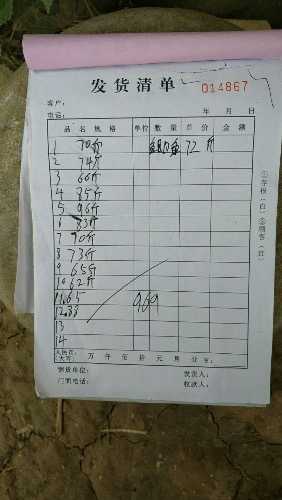 发货清单 014867
客户：
电话： 年 月 日
品名规格 单位 数量 单价 金额
1 70斤 72斤
2 74斤
3 60斤
4 85斤
5 96斤
6 83斤
7 90斤
8 73斤
9 65斤
10 62斤
11 65 969
12 88
13
14
人民币：(大写) 万 仟 佰 拾 元 角 分 ¥：
供货单位： 发货人：
门市电话： 收款人：
①存根（白）②顾客（红）